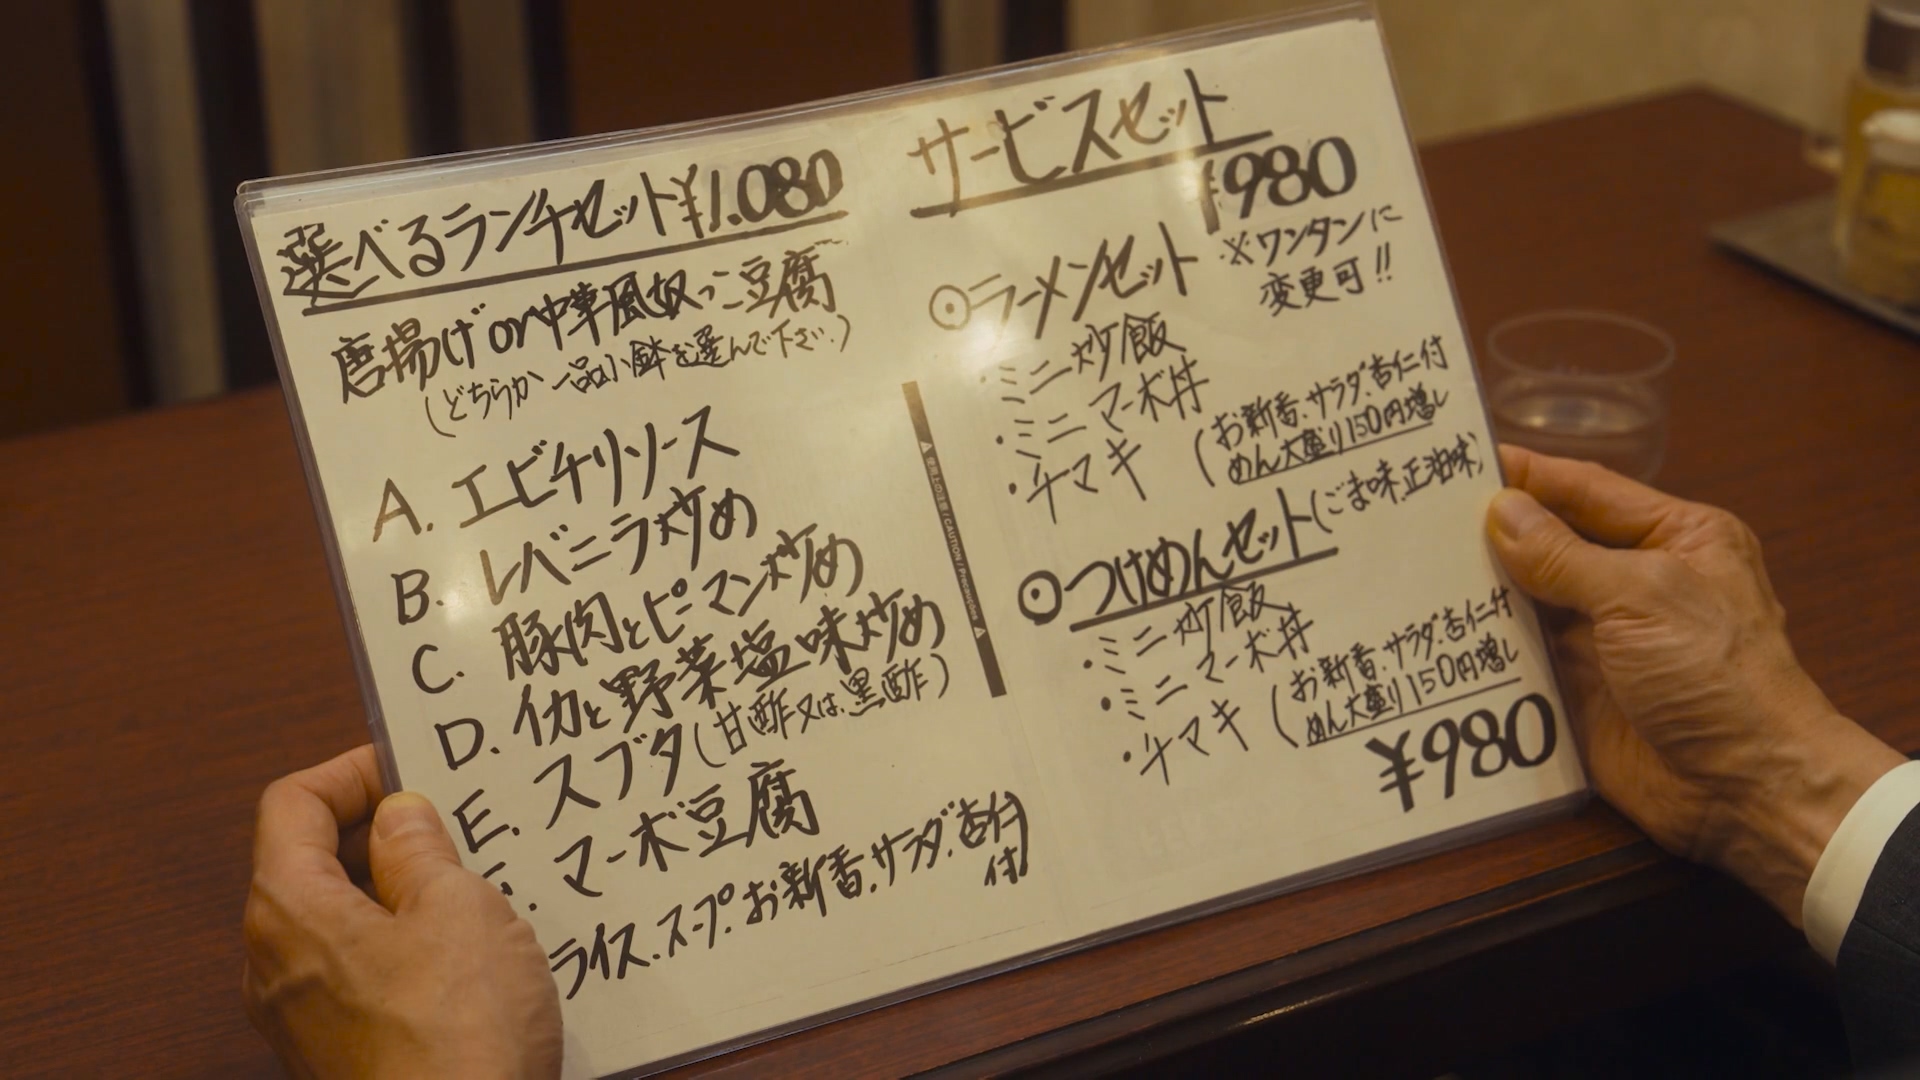 選べるランチセット¥1.080
唐揚げor中華風奴っこ豆腐
(どちらか一品小鉢を選んで下さい。)
A. エビチリソース
B. レバニラ炒め
C. 豚肉とピーマン炒め
D. イカと野菜塩味炒め
E. スブタ(甘酢又は、黒酢)
マーボ豆腐
ライス、スープ、お新香、サラダ、杏仁
付
使用上の注意 / CAUTION / Précautions
サービスセット
¥980
※ワンタンに
変更可!!
◎ラーメンセット
・ミニ炒飯
・ミニマーボ丼
・チマキ
(お新香、サラダ、杏仁付
めん大盛り150円増し
◎つけめんセット(ごま味、正油味)
・ミニ炒飯
・ミニマーボ丼
・チマキ
(お新香、サラダ、杏仁付
めん大盛り150円増し
¥980